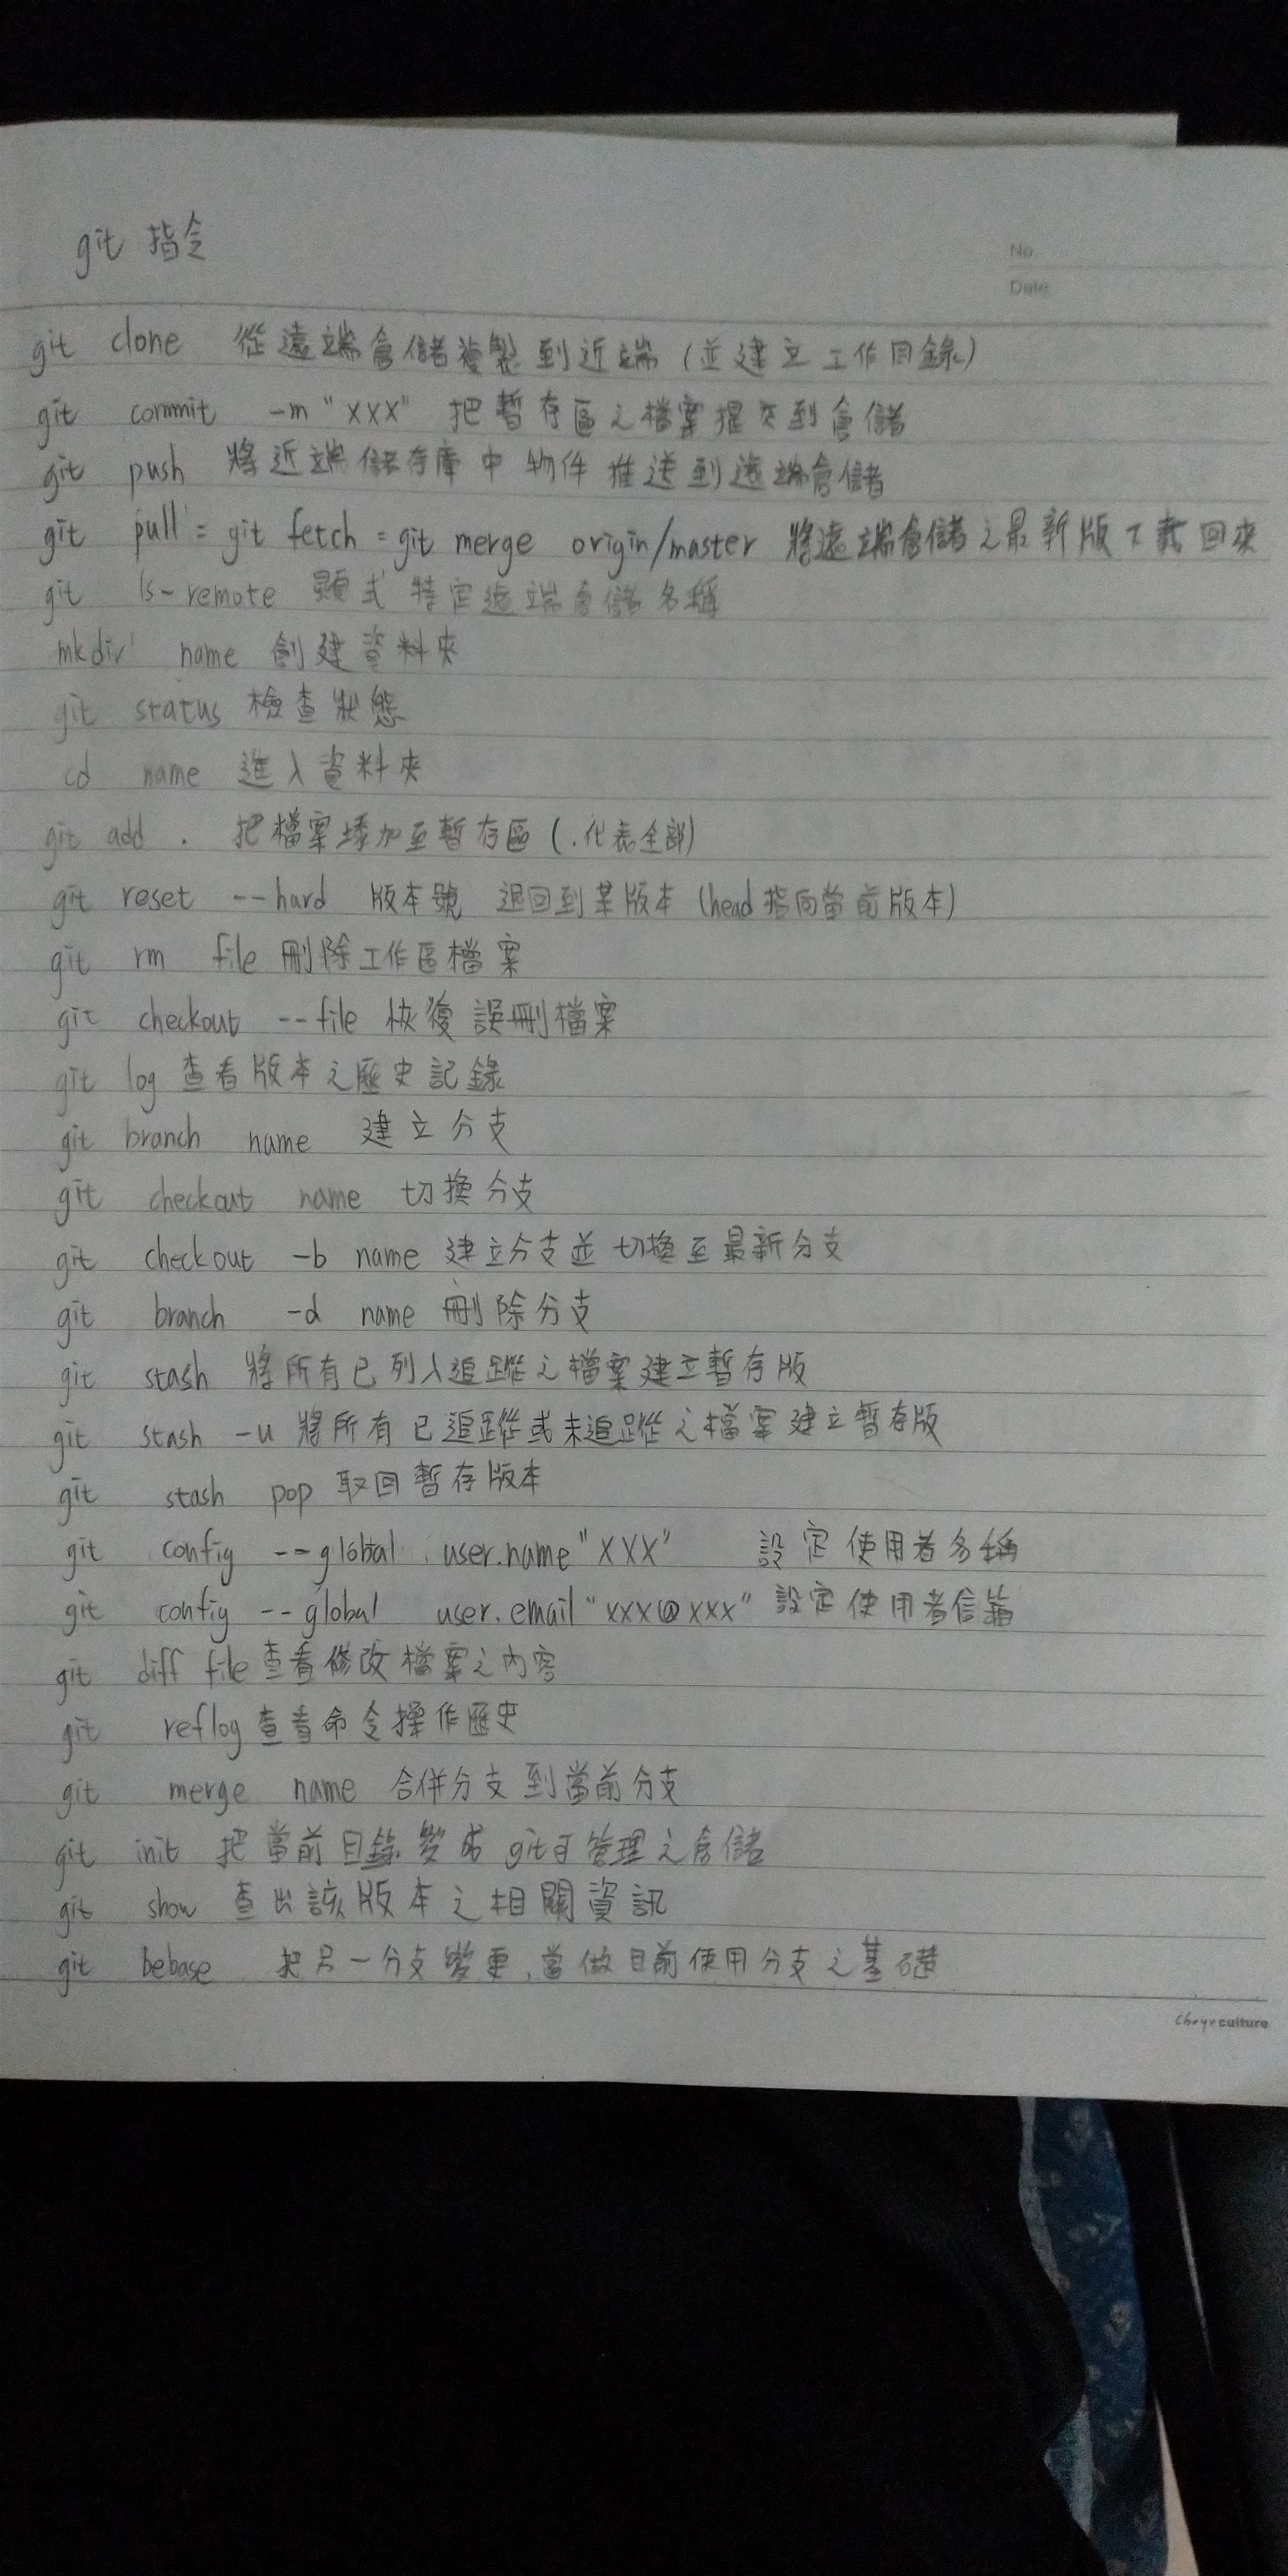 git 指令
No
Date
git clone 從遠端倉儲複製到近端 (並建立工作目錄)
git commit -m "xxx" 把暫存區之檔案提交到倉儲
git push 將近端儲存庫中物件推送到遠端倉儲
git pull = git fetch = git merge origin/master 將遠端倉儲之最新版下載回來
git ls-remote 顯式特定遠端倉儲名稱
mkdir name 創建資料夾
git status 檢查狀態
cd name 進入資料夾
git add . 把檔案添加至暫存區 (.代表全部)
git reset --hard 版本號 退回到某版本 (head指向當前版本)
git rm file 刪除工作區檔案
git checkout --file 恢復誤刪檔案
git log 查看版本之歷史記錄
git branch name 建立分支
git checkout name 切換分支
git checkout -b name 建立分支並切換至最新分支
git branch -d name 刪除分支
git stash 將所有已列入追蹤之檔案建立暫存版
git stash -u 將所有已追蹤或未追蹤之檔案建立暫存版
git stash pop 取回暫存版本
git config --global user.name "XXX" 設定使用者名稱
git config --global user.email "xxx@xxx" 設定使用者信箱
git diff file 查看修改檔案之內容
git reflog 查看命令操作歷史
git merge name 合併分支到當前分支
git init 把當前目錄變成git可管理之倉儲
git show 查出該版本之相關資訊
git bebase 把另一分支變更,當做目前使用分支之基礎
Choye culture